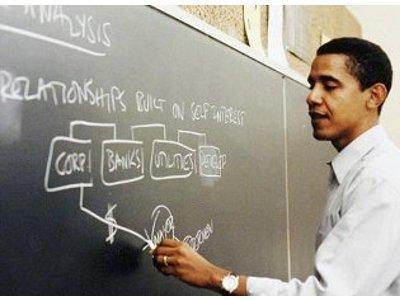 ANALYSIS
RELATIONSHIPS BUILT ON SELF INTEREST
CORP BANKS UTILITIES
$ MAYOR